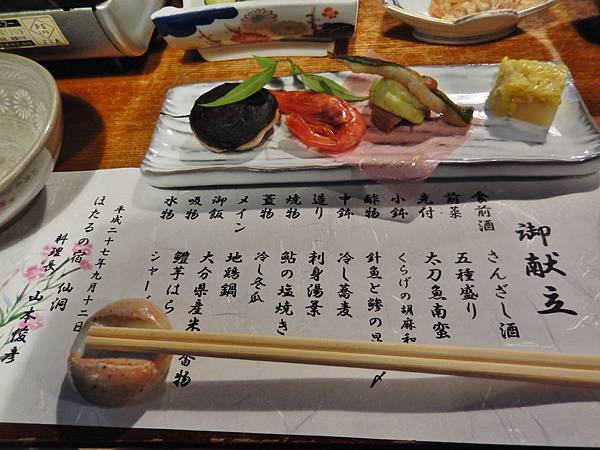 御献立
食前酒　さんざし酒
前菜　五種盛り
先付　太刀魚南蛮
小鉢　くらげの胡麻和
酢物　針魚と鰺の
中鉢　冷し蕎麦
造り　刺身湯葉
焼物　鮎の塩焼き
蓋物　冷し冬瓜
メイン　地鶏鍋
御飯　大分県産米
吸物　鱧芋はら
水物　シャー
平成二十七年九月十二日
ほたるの宿　仙洞
料理長　山本俊彦